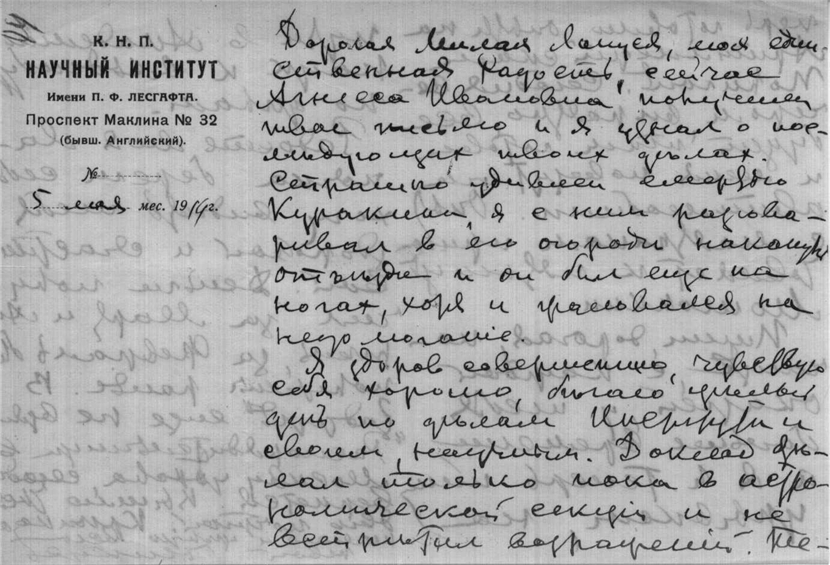 К. Н. П.
НАУЧНЫЙ ИНСТИТУТ
Имени П. Ф. ЛЕСГАФТА.
Проспект Маклина № 32
(бывш. Английский).
№
5 мая мес. 19 г.
Дорогая Милая Лапуся, моя един-
ственная радость, сейчас
Агнеса Ивановна получила
твое письмо и я узнал о пос-
ледующих твоих делах.
Страшно удивлен смертью
Куракина, я с ним разгова-
ривал в его огороде накануне
отъезда и он был еще на
ногах, хотя и жаловался на
недомогание.
Я здоров совершенно, чувствую
себя хорошо, бегаю целый
день по делам Института и
своим научным. Доклад де-
лал только пока в астро-
номической секции и не
встретил возражений. Те-